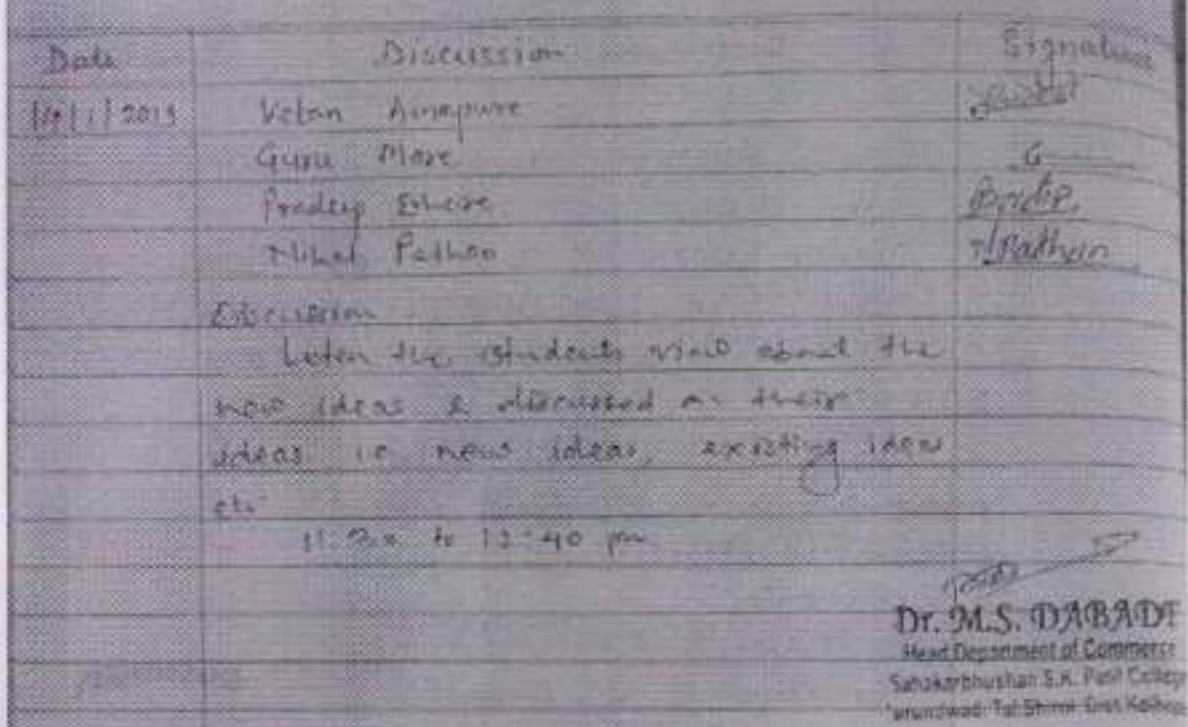 Date Discussion Signature
2013 Ketan Ainapure
Guru More G
Pradeep Pradip
Nihal Pathan N Pathan
Discussion
Listen the students view about the
new ideas & discussed on their
ideas i.e. new ideas, existing ideas
etc.
to 12:40 pm
Dr. M.S. DABADE
Head Department of Commerce
Sahakarbhushan S.K. Patil College
Kurundwad Tal Shirol Dist Kolhap